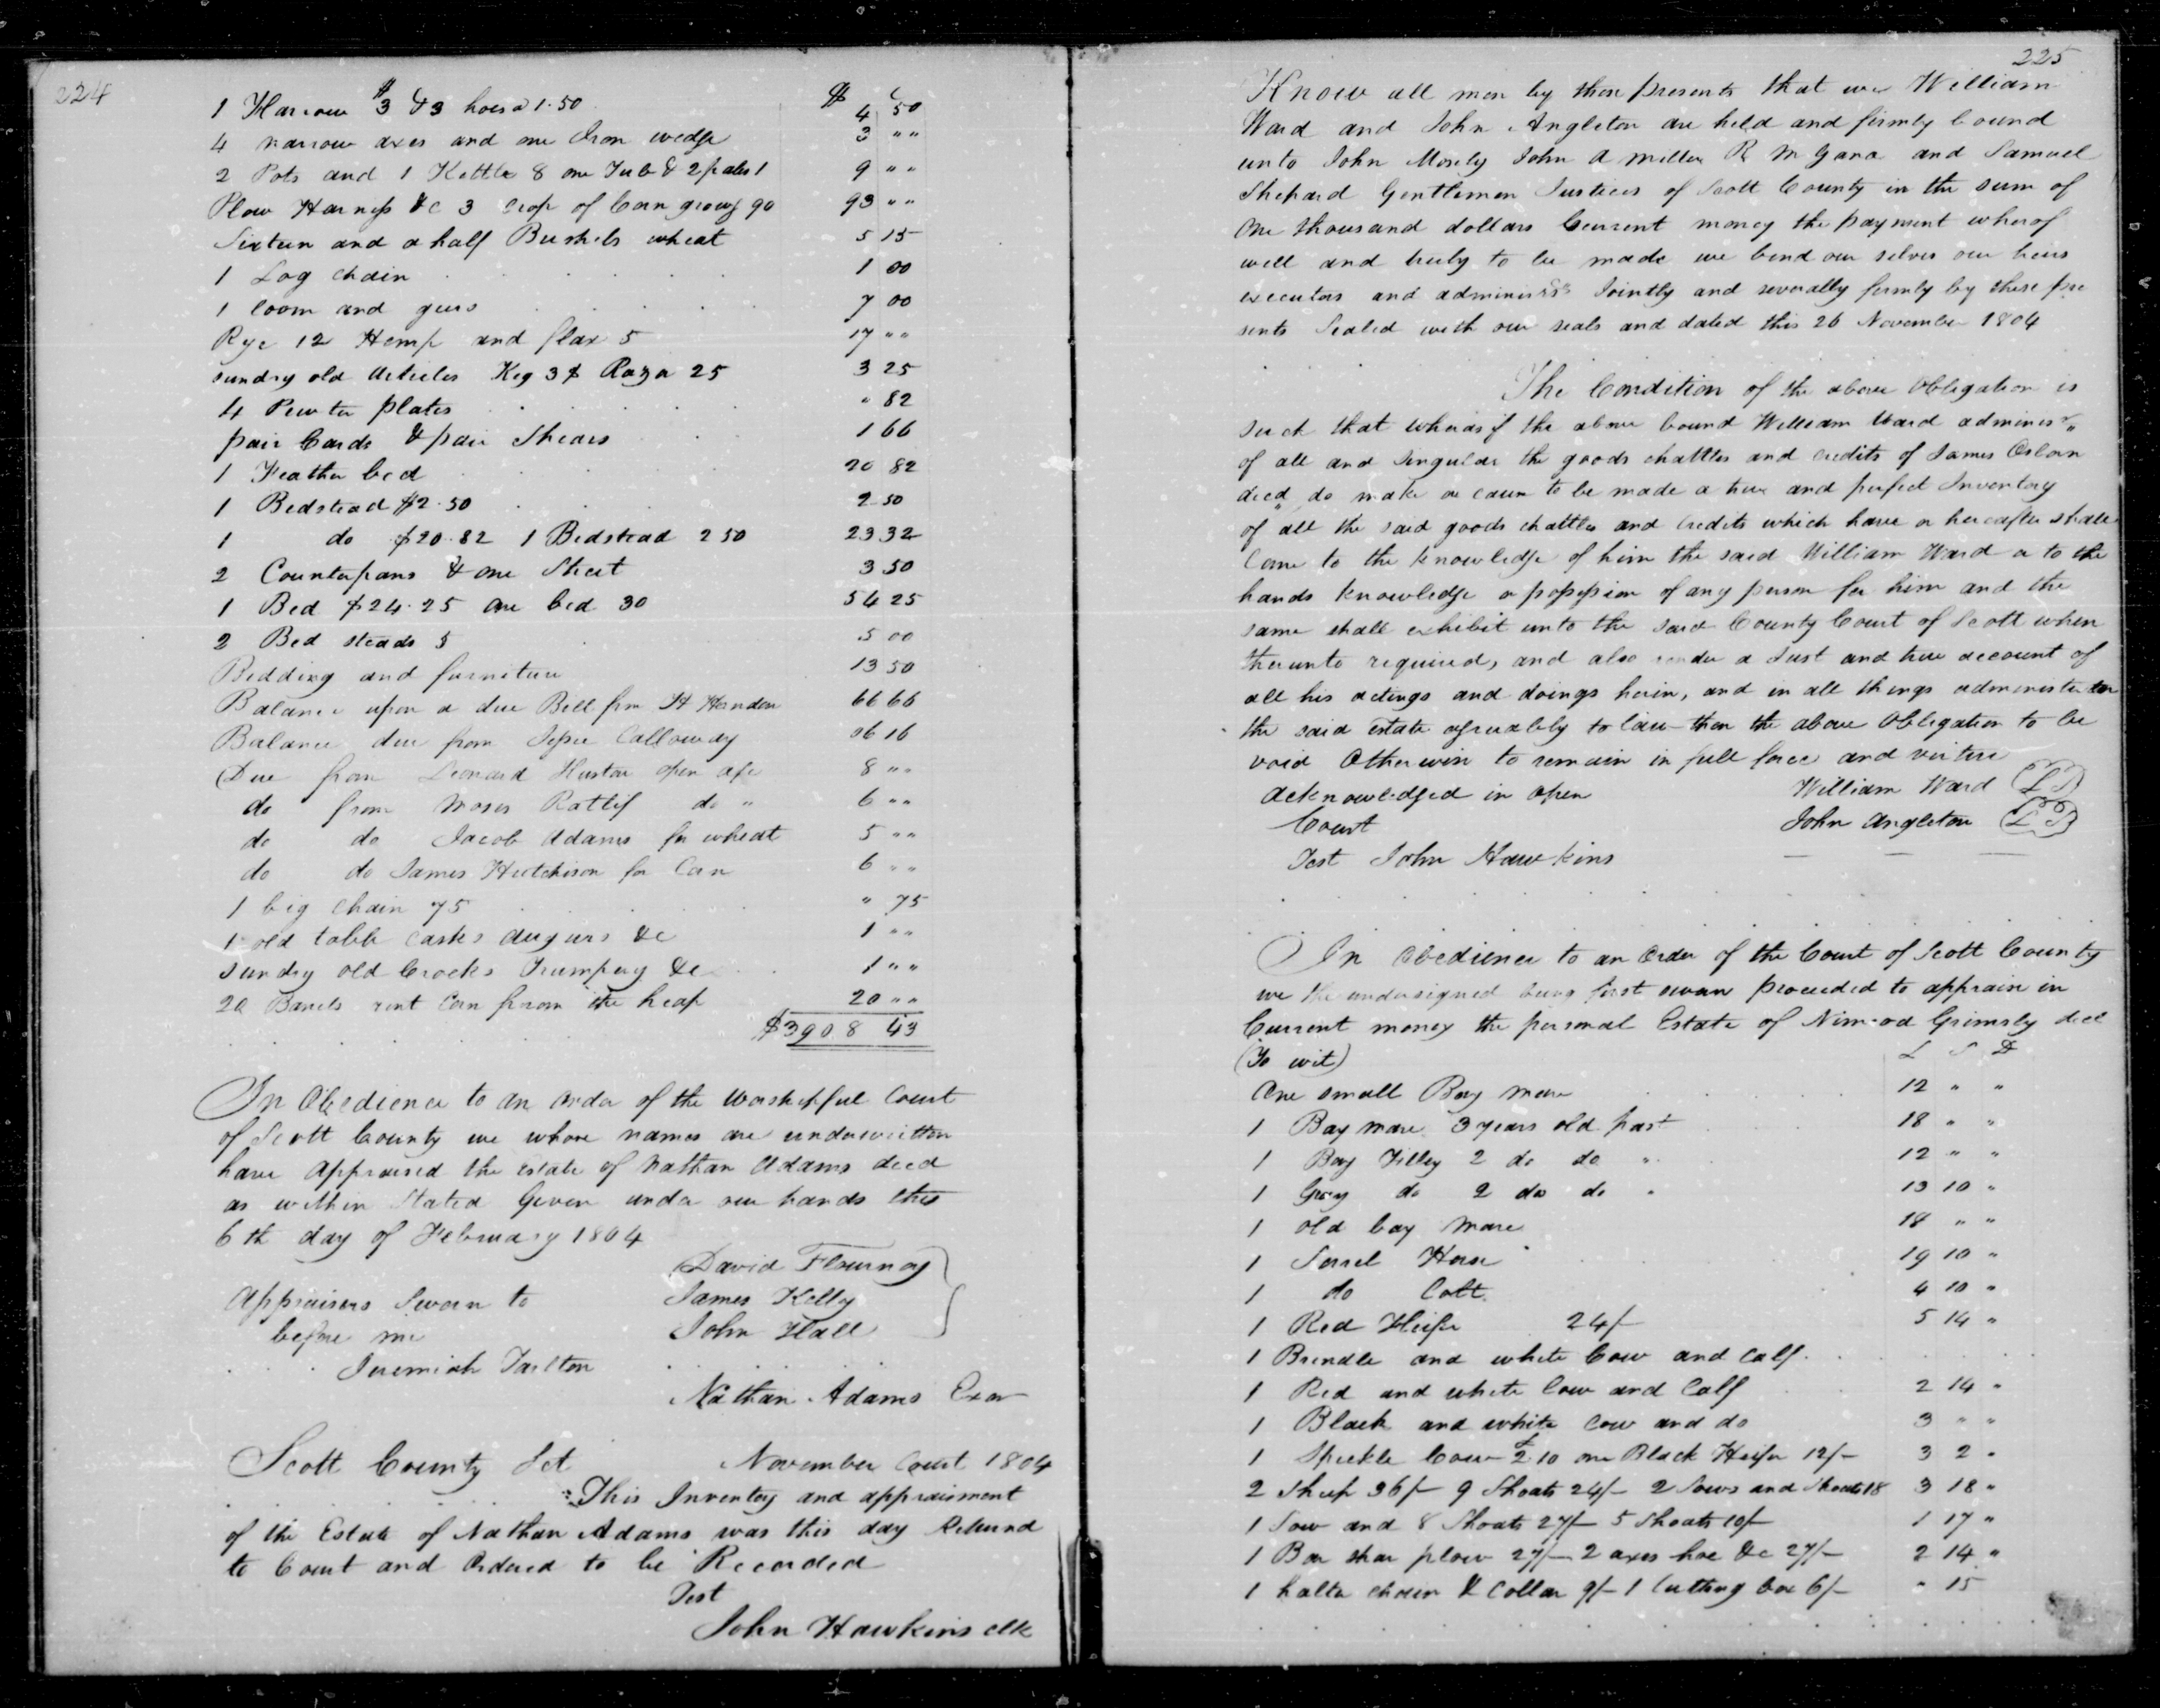 224
$ c
1 Harrow $3 & 3 hoes a 1.50 4 50
4 narrow axes and one Iron wedge 3 " "
2 Pots and 1 Kettle 8 one Tub & 2 pales 1 9 " "
Plow Harness &c 3 Crop of Corn growg 90 93 " "
Sixteen and a half Bushels wheat 5 15
1 Log chain 1 00
1 loom and gears 7 00
Rye 12 Hemp and flax 5 17 " "
sundry old Articles Keg 3 $ Razor 25 3 25
4 Pewter plates " 82
pair Cards & pair Shears 1 66
1 Feather bed 20 82
1 Bedstead $2.50 2 50
1 do $20.82 1 Bedstead 2 50 23 32
2 Counterpans & one Sheet 3 50
1 Bed $24.25 one bed 30 54 25
2 Bed steads 5 5 00
Bedding and furniture 13 50
Balance upon a due Bill from H Herndon 66 66
Balance due from Jesse Calloway 06 16
Due from Leonard Huston open a/c 8 " "
do from Moses Ratlif do " 6 " "
do do Jacob Adams for wheat 5 " "
do do James Hutchison for Corn 6 " "
1 big chain 75 " 75
1 old table casks augurs &c 1 " "
sundry old Crocks Trumpery &c 1 " "
20 Barrels rent Corn from the heap 20 " "
$3908 43
In Obedience to an order of the Worshipful Court
of Scott County we whose names are underwritten
have Appraised the Estate of Nathan Adams decd
as within Stated Given under our hands this
6th day of February 1804
David Flournoy
Appraisers Sworn to James Kelly
before me John Hall
Jeremiah Tarlton
Nathan Adams Exor
Scott County Sct November Court 1804
This Inventory and appraisment
of the Estate of Nathan Adams was this day Returnd
to Court and Ordered to be Recorded
Test
John Hawkins clk
225
Know all men by these presents that we William
Ward and John Angleton are held and firmly bound
unto John Mosely John A Miller R M Gano and Samuel
Shepard Gentlemen Justices of Scott County in the sum of
One thousand dollars Current money the payment wherof
well and truly to be made we bend our selves our heirs
executors and adminisrs Jointly and severally firmly by these pre
sents Sealed with our seals and dated this 26 November 1804
The Condition of the above Obligation is
such that wheras if the above bound William Ward adminisr
of all and Singular the goods chattles and credits of James Osborn
decd do make or cause to be made a true and perfect Inventory
of all the said goods chattles and Credits which have or hereafter shall
Come to the knowledge of him the said William Ward or to the
hands knowledge or possession of any person for him and the
same shall exhibit unto the said County Court of Scott when
therunto required, and also render a Just and true account of
all his actings and doings herin, and in all things administer
the said estate agreeably to law then the above Obligation to be
void Otherwise to remain in full force and virtue
Acknowledged in open William Ward LS
Court John Angleton LS
Test John Hawkins
In Obedience to an Order of the Court of Scott County
we the undersigned being first sworn proceeded to appraise in
Current money the personal Estate of Nimrod Grimsly decd
(To wit) L S D
One small Bay mare 12 " "
1 Bay mare 3 years old past 18 " "
1 Bay Filley 2 do do " 12 " "
1 Gray do 2 do do " 13 10 "
1 old bay mare 18 " "
1 Sorrel Horse 19 10 "
1 do Colt 4 10 "
1 Red Heifer 24/- 5 14 "
1 Brindle and white Cow and Calf
1 Red and white Cow and Calf 2 14 "
1 Black and white Cow and do 3 " "
1 Speckle Cow £2 10 one Black Heifer 12/- 3 2 "
2 Sheep 36/- 9 Shoats 24/- 2 Sows and Shoats 18 3 18 "
1 Sow and 8 Shoats 27/- 5 Shoats 10/- 1 17 "
1 Bar shar plow 27/- 2 axes hoe &c 27/- 2 14 "
1 halter chain & Collar 9/- 1 Cutting box 6/- " 15